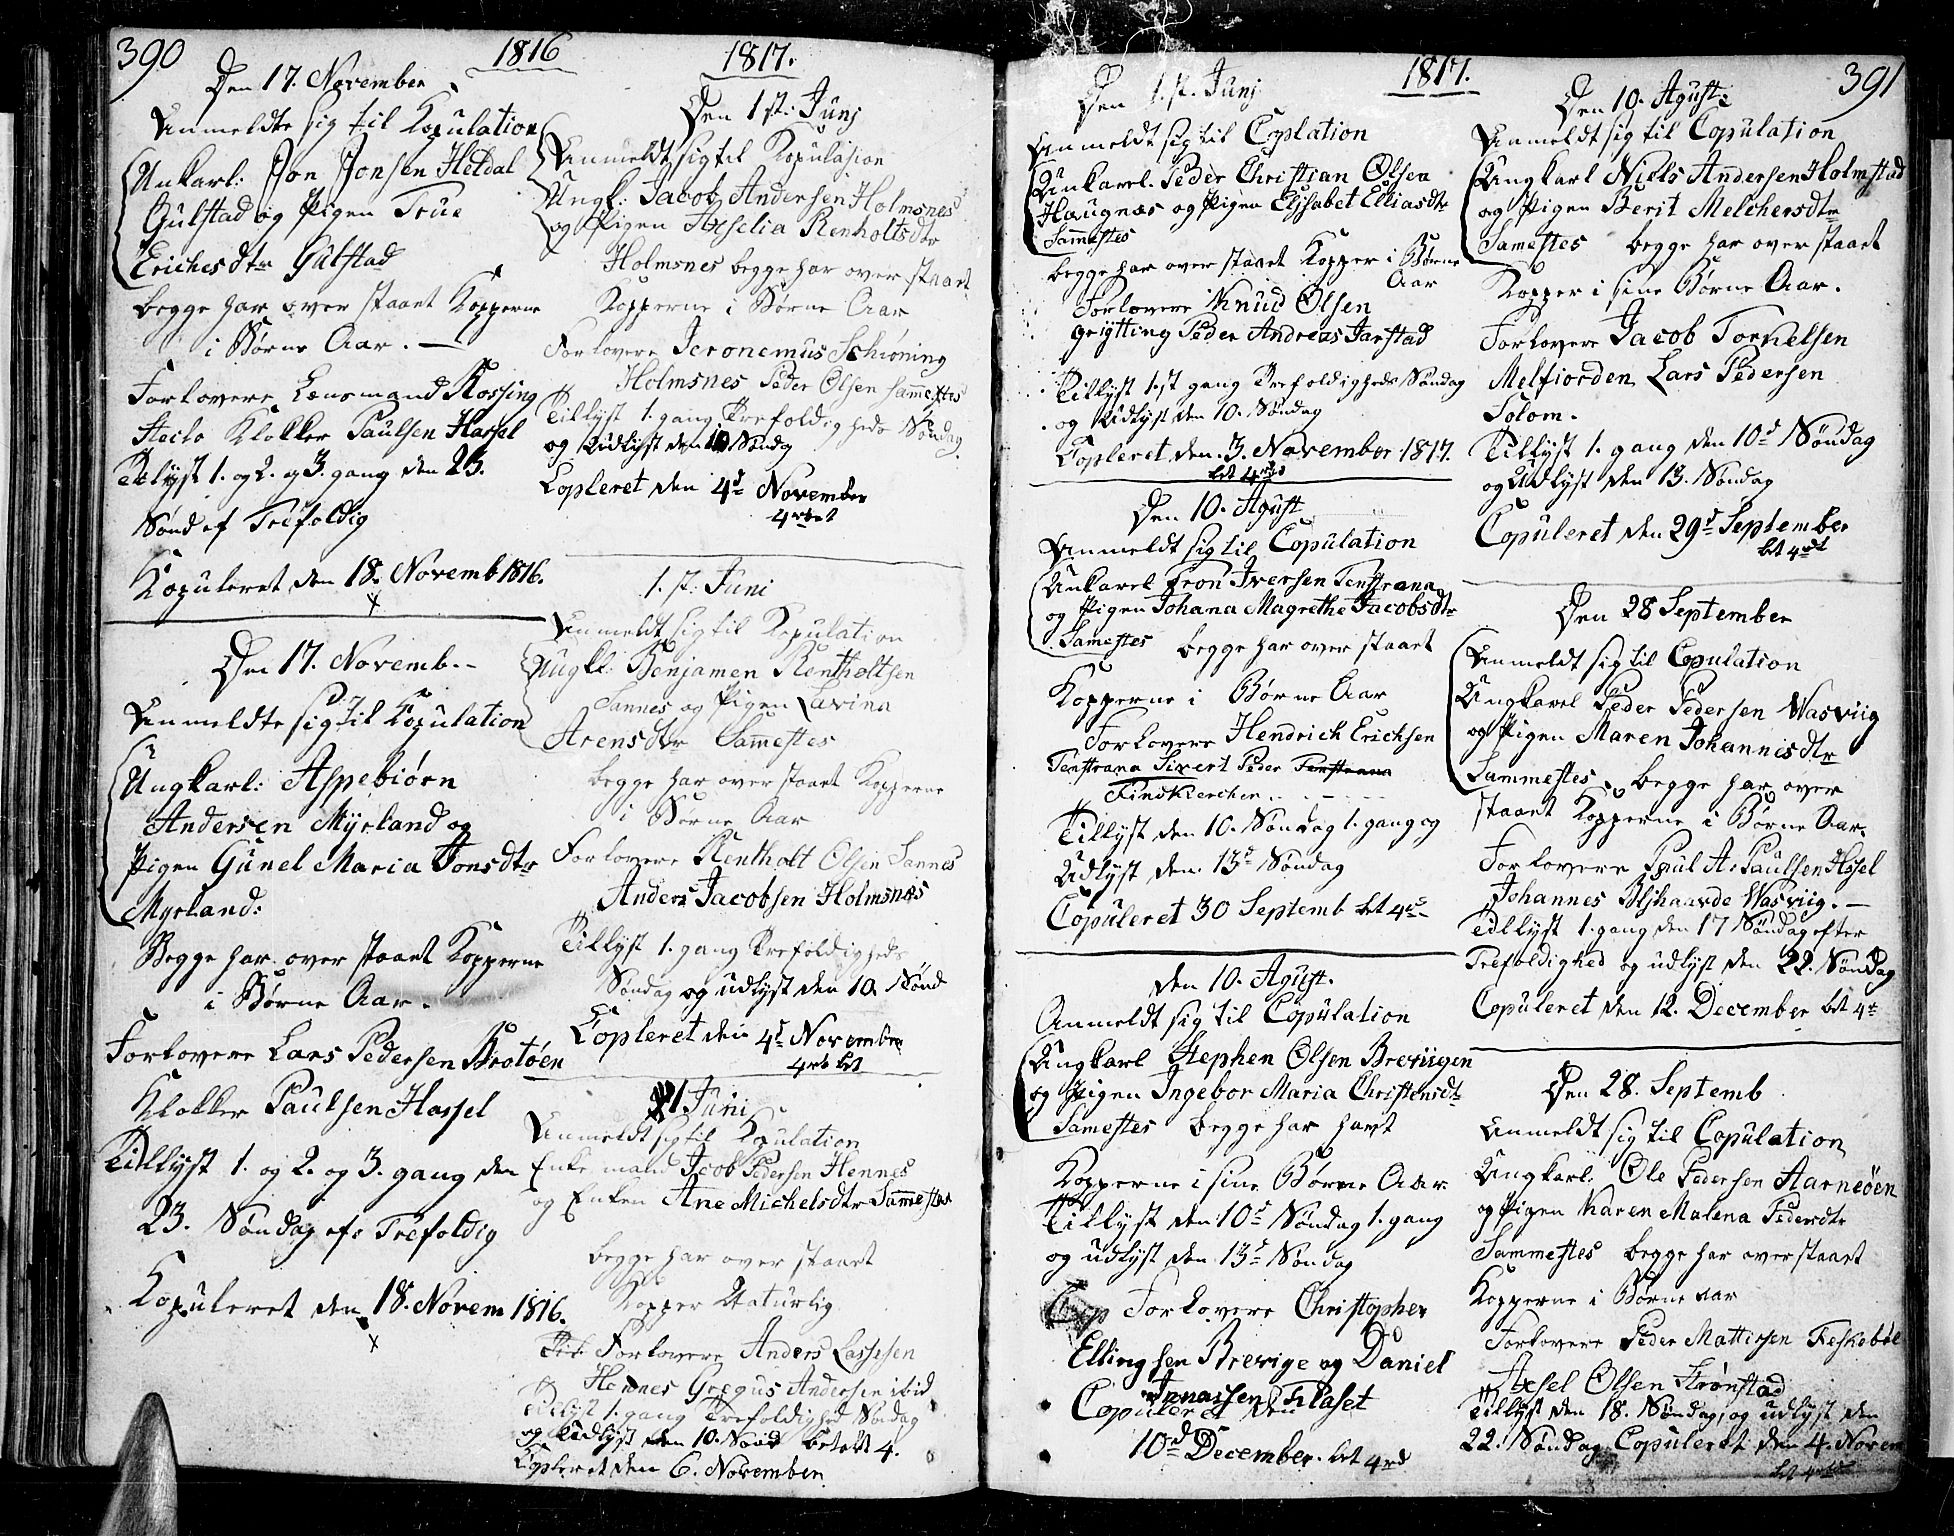 390
1816
Den 17. November
Anmeldte sig til Kopulation
Unkarl: Jon Jonsen Heldal
Gulstad og Pigen True
Erichesdtr Gulstad
begge har over staaet Kopperne
i Børne Aar. —
Forlovere Lensmand Rossing
Steilo Klokker Paulsen Hassel
Tilyst 1. og 2. og 3. gang den 23.
Sønd ef Trefoldig
Kopuleret den 18. Novemb 1816.
Den 17. Novemb.
Anmeldte sig til Kopulation
Ungkarl: Aspebiørn
Andersen Myrland og
Pigen Gunel Maria Jonsdtr
Myrland:
Begge har over staaet Kopperne
i Børne Aar.
Forlovere Lars Pedersen Brotøen
Klokker Paulsen Hassel
Tillyst 1. og 2. og 3. gang den
23. Søndag ef: Trefoldig
Kopuleret den 18. Novem 1816.
1817.
Den 1st: Junj
Anmeldt sig til Kopulasion
Ungk: Jacob Andersen Holmsnes
og Pigen Asselia Renholtsdtr
Holmsnes begge har over staaet
Kopperne i Børne Aar
Forlovere Jeronemus Schiøning
Holmsnes Peder Olsen Sammestes
Tillyst 1. gang Trefoldigheds Søndag
og Udlyst den 10 Søndg
Copleret den 4d November
4 rbet
1. st: Juni
Anmeldt sig til Kopulation
Ungkl: Benjamen Rentholtsen
Sannes og Pigen Lavina
Arensdtr Sammestes
begge har over staaet Kopperne
i Børne Aar
Forlovere Rentholt Olsen Sannes
Anders Jacobsen Holmsnæs
Tillyst 1. gang Trefoldigheds
Søndag og udlyst den 10. Sønd
Copleret den 4d November
4rb bet
1 Juni
Anmeldt sig til Kopulation
Enkemand Jcob Pedersen Hennes
og Enken Ane Michelsdtr Sammestes
begge har over staaet
Kopper Naturlig
Forlovere Anders Lassesen
Hennes Gregus Andersen ibid
Tillyst 1. gang Trefoldighed Søndag
og Udlyst den 10. Sønd betalt 4.
Copleret den 6. November
1817.
391
Den 1. st. Junj
Anmeldt sig til Coplation
Unkarel. Peder Christian Olsen
Haugnæs og Pigen Elisabet Elliasdtr
Sammestes
begge har over staaet Kopper i Børne
Aar
Forlovere Knud Olsen
Peder Andreas Jarstad
Tillyst 1.st gang Trefoldigheds Søndag
og Udlyst den 10. Søndag
Copleret den 3. November 1817.
bet 4rd
Den 10. Agust
Anmeldt sig til Copulation
Unkarel Tron Iversen Tenstrana
og Pigen Johana Magrethe Jacobsdtr
Samestes begge har over staaet
Kopperne i Børne Aar
Forlovere Hendrich Erichsen
Tenstrana Sivert Peder Tenstrana
Findkierchen
Tillyst den 10. Søndag 1. gang og
Udlyst den 13d Søndag
Copuleret 30 Septemb bet 4
den 10. Agust.
Anmeldt sig til Copulation
Ungkarl Stephen Olsen Breviigen
og Pigen Ingebor Maria Christensdtr
Samestes begge har havt
Kopperne i sine Børne Aar
Tillyst den 10d Søndag 1. gang
og udlyst den 13d Søndag
Forlovere Christopher
Ellingsen Brevige og Daniel
Jonassen Flaset
Copuleret den
10d December. bet 4rd
Den 10. Agust:
Anmeldt sig til Copulation
Ungkarl Niels Andersen Holmstad
og Pigen Berit Melchersdtr
Samestes begge har over staaet
Kopper i sine Børne Aar.
Forlovere Jacob Tornelsen
Melfiorden Lars Pedersen
Solom.
Tillyst 1. gang den 10d Søndag
og Udlyst den 13. Søndag
Copuleret den 29d September
bet 4rdt
Den 28 September
Anmeldt sig til Copulation
Ungkarel Peder Pedersen Wasviig
og Pigen Maren Johannisdtr
Sammestes. begge har over
staaet Kopperne i Børne Aar.
Forlovere Poul A: Paulsen Hassel
Johannes Wasviig. —
Tillyst 1. gang den 17 Søndag efter
Trefoldighed og udlyst den 22. Søndag
Copuleret den 12. December bet 4
Den 28. Septemb
Anmeldt sig til Copulation
Ungkarl: Ole Pedersen Aarneøen
og Pigen Karen Malena Pedersdtr
Sammestes begge har over staaet
Kopperne i Børne aar
Forlovere Peder Mattissen Feskebøl
Axsel Olsen Strønstad
Tillyst den 18. Søndag, og udlyst den
22. Søndag Copuleret den 4. Novem
bet 4